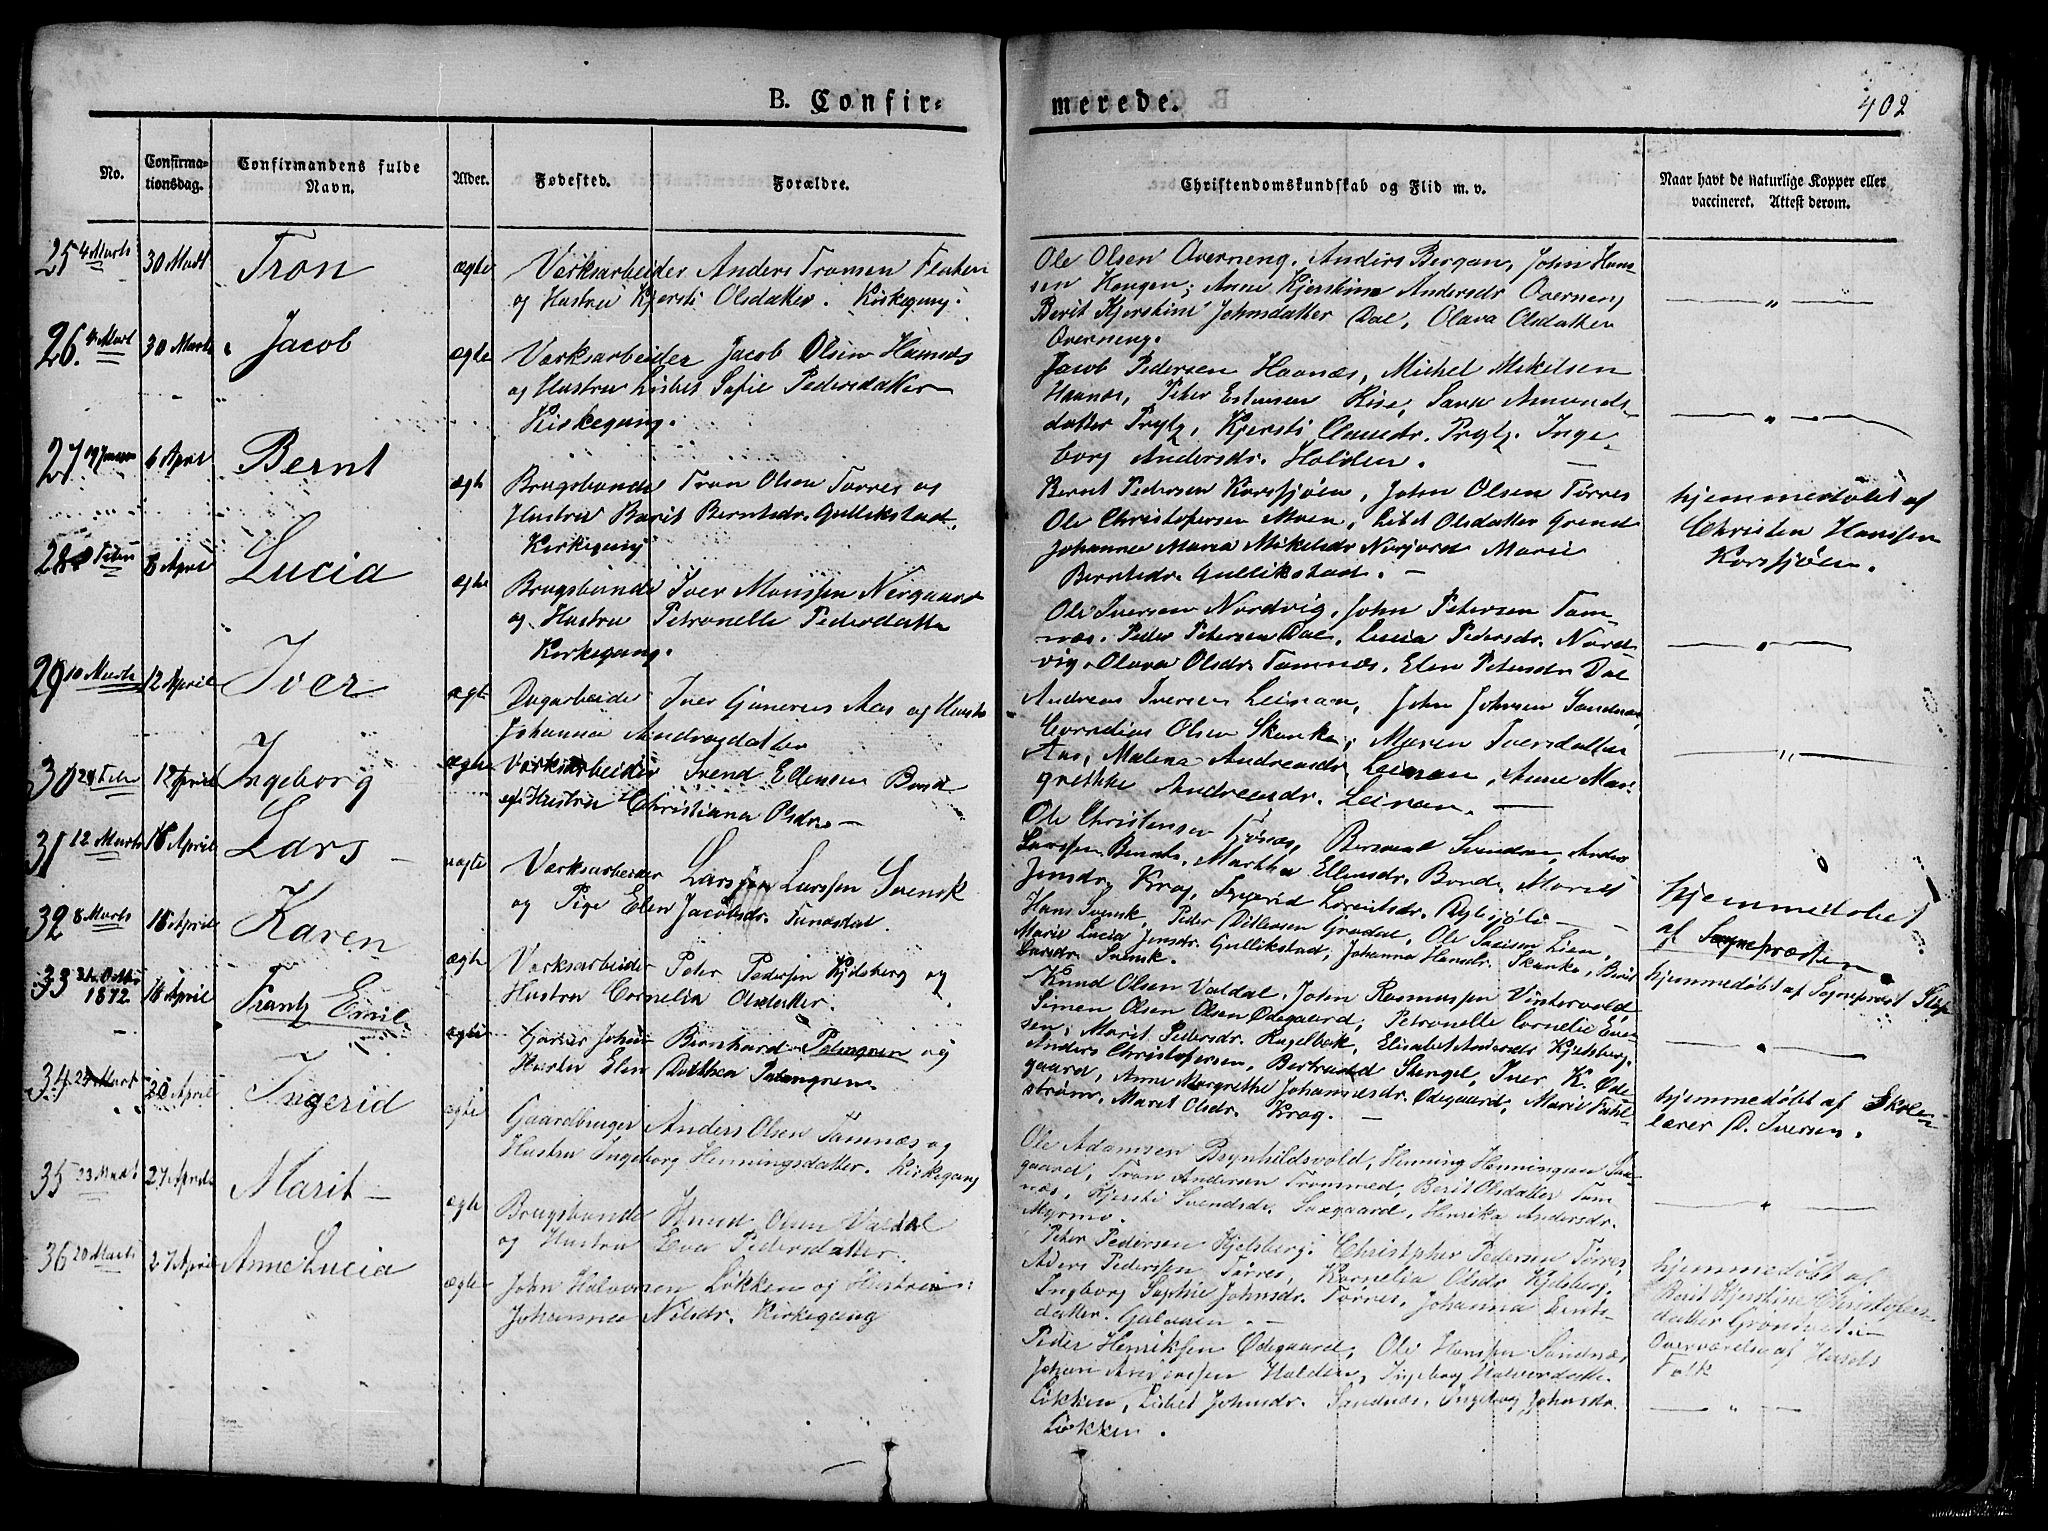 B. Confir-
merede.
402
No.
Confirma-
tionsdag.
Confirmandens fulde
Navn.
Alder.
Fødested.
Forældre.
Christendomskundskab og Flid m. v.
Naar havt de naturlige Kopper eller
vaccineret. Attest derom.
25 4 Marts 30 Marts Tron ægte Værksarbeider Anders Tronsen Floten
og Hustru Kjersti Olsdatter. Kirkegang.
Ole Olsen Overneng, Anders Bergan, John Han-
sen Hongen; Anne Kjerstine Andersdr Overneng
Berit Kjerstine Johnsdatter Dal, Olava Olsdatter
Overneng.
— " —
26. 30 Marts Jacob ægte Værksarbeider Jacob Olsen Haanæs
og Hustru Lisbet Sofie Pedersdatter
Kirkegang.
Jacob Pedersen Haanæs, Michel Mikelsen
Haanæs, Peter Estensen Rise, Sara Amunds-
datter Prytz, Kjersti Clausdr. Prytz. Inge-
borg Andersdr. Holden. —
— " —
27 6 April Bernt ægte Brugsbonde Tron Olsen Tørres og
Hustru Barit Berntsdr. Gullikstad.
Kirkegang
Bernt Pedersen Korssjøen, John Olsen Tørres
Ole Christopersen Moen, Lisbet Olsdatter Grend
Johanna Maria Mikelsdr Norjord Marie
Berntsdr. Gullikstad. —
hjemmedøbt af
Christen Hanssen
Korssjøen.
28 8 Febru 8 April Lucia ægte Brugsbonde Iver Monssen Nergaard
og Hustru Petronelle Pedersdatter
Kirkegang.
Ole Iversen Nordvig, John Petersen Tam-
næs. Peder Petersen Dal, Lucia Pedersdr. Nord-
vig. Olava Olsdr. Tamnæs. Elen Petersdr Dal
— " —
29 10 Marts 12 April Iver ægte Dagarbeider Iver Gunerius Aas og Hustru
Johanna Andreasdatter
Andreas Iversen Leinan, John Johnsen Sandnæs,
Cornelius Olsen Skanke, Maren Iversdatter
Aas, Malena Andreasdr. Leinan, Anne Mar-
grethe Andreasdr. Leinan. —
— " —
30 24 Febru 12 April Ingeborg ægte Værksarbeider Svend Ellensen Bond
og Hustru Christiana Olsdr. —
Ole Christensen Tyvold, Svendsen, Anders
Larssen Martha Ellensdr. Bond, Marit
Jonsdr. Krog, Ingerid Lorentsdr. —
31 12 Marts 18 April Lars — uægte Værksarbeider Lars Larssen Svensk
og Pige Elen Jacobsdr. Tunesdal.
Hans Svensk, Peder Ditlevsen Grådal, Ole Lien,
Marie Lucia Jensdr. Gullikstad, Johanna Hansdr. Skanke, Berit
Larsdr. Svensk.
hjemmedøbt
af Sognepræsten
32 8 Marts 18 April Karen ægte Værksarbeider Peter Pedersen Kjelsberg og
Hustru Cornelia Olsdatter.
Knud Olsen Valdal, John Rasmussen Vintervold,
Simen Olsen Ødegaard, Petronelle Cornelie Even-
sen, Marit Pedersdr. Rugelbæk, Elisabet Andersdr Kjelsberg.
hjemmedøbt af Sognepræst
33 31te Octbr 1872 18 April Frantz Emil ægte Garver Johan Bernhard Palmgren og
Hustru Elen Dorthea Palmgren.
Anders Christofersen, Bertrand Stengel, Iver K. Øde-
gaard, Anne Margrethe Johannesdr. Ødegaard, Marie Fahl-
strøm, Maret Olsdr. Krog. —
— " —
34 24 Mart 20 April Ingerid ægte Gaardbruger Anders Olsen Tamnæs og
Hustru Ingeborg Henningsdatter. Kirkegang
Ole Adamsen Brynhildsvold, Henning Henningsen Sax-
gaard, Tron Andersen Trommed, Berit Olsdatter Tam-
næs, Kjersti Svendsdr. Saxgaard, Henrika Andersdr.
Myrmo.
hjemmedøbt af Skole-
lærer P. Iversen.
35 23 Marts 27 April Marit — ægte Brugsbonde Knud Olsen Valdal
og Hustru Eva Pedersdatter.
Peter Pedersen Kjelsberg. Christopher Pedersen Tørres
Aders Pederssen Tørres, Kornelia Olsdr Kjelsberg.
Ingborg Sophie Johnsdr. Tørres, Johanna Bents-
datter. Galaaen. —
— " —
36 20 Marts 27 April Anne Lucia ægte John Halvorsen Løkken og Hustru:
Johannes Nilsdr. Kirkegang
Peder Henriksen Ødegaard, Ole Hanssen Sandnæs
Johan Andreassen Holden, Ingeborg Halvorsdatter
Løkken, Lisbet Johnsdr. Sandnæs, Ingeborg Johnsdr.
Løkken.
hjemmedøbt af
Berit Kjerstine Christofers-
datter Grønvold i
Overværelse af Husets
Folk
— " —